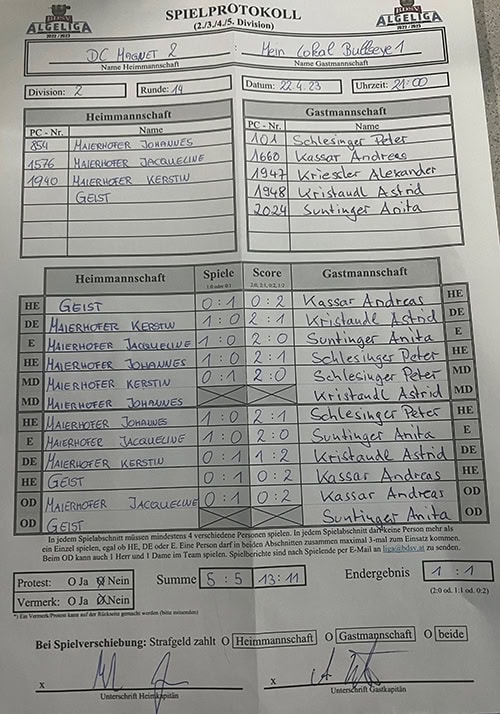 BDSV
ALGELIGA
2022 / 2023
SPIELPROTOKOLL
(2./3./4./5. Division)
BDSV
ALGELIGA
2022 / 2023
DC MAGNET 2 : Mein Lokal Bullseye 1
Name Heimmannschaft Name Gastmannschaft
Division: 2 Runde: 14 Datum: 22.4.23 Uhrzeit: 21:00
Heimmannschaft Gastmannschaft
PC - Nr. Name PC - Nr. Name
854 MAIERHOFER JOHANNES 101 Schlesinger Peter
1576 MAIERHOFER JACQUELINE 1660 Kassar Andreas
1940 MAIERHOFER KERSTIN 1947 Kriessler Alexander
GEIST 1948 Kristaudl Astrid
2024 Suntinger Anita
Heimmannschaft Spiele Score Gastmannschaft
1:0 oder 0:1 2:0, 2:1, 0:2, 1:2
HE GEIST 0:1 0:2 Kassar Andreas HE
DE MAIERHOFER KERSTIN 1:0 2:1 Kristaudl Astrid DE
E MAIERHOFER JACQUELINE 1:0 2:0 Suntinger Anita E
HE MAIERHOFER JOHANNES 1:0 2:1 Schlesinger Peter HE
MD MAIERHOFER KERSTIN 0:1 2:0 Schlesinger Peter MD
MD MAIERHOFER JOHANNES Kristaudl Astrid MD
HE MAIERHOFER JOHANNES 1:0 2:1 Schlesinger Peter HE
E MAIERHOFER JACQUELINE 1:0 2:0 Suntinger Anita E
DE MAIERHOFER KERSTIN 0:1 1:2 Kristaudl Astrid DE
HE GEIST 0:1 0:2 Kassar Andreas HE
OD MAIERHOFER JACQUELINE 0:1 0:2 Kassar Andreas OD
OD GEIST Suntinger Anita OD
In jedem Spielabschnitt müssen mindestens 4 verschiedene Personen spielen. In jedem Spielabschnitt darf keine Person mehr als
ein Einzel spielen, egal ob HE, DE oder E. Eine Person darf in beiden Abschnitten zusammen maximal 3-mal zum Einsatz kommen.
Beim OD kann auch 1 Herr und 1 Dame im Team spielen. Spielberichte sind nach Spielende per E-Mail an liga@bdsv.at zu senden.
Protest: O Ja O Nein Summe 5 : 5 13:11 Endergebnis 1 : 1
Vermerk: O Ja O Nein (2:0 od. 1:1 od. 0:2)
*) Ein Vermerk/Protest kann auf der Rückseite gemacht werden (bitte ankreuzen)
Bei Spielverschiebung: Strafgeld zahlt O Heimmannschaft O Gastmannschaft O beide
x x
Unterschrift Heimkapitän Unterschrift Gastkapitän